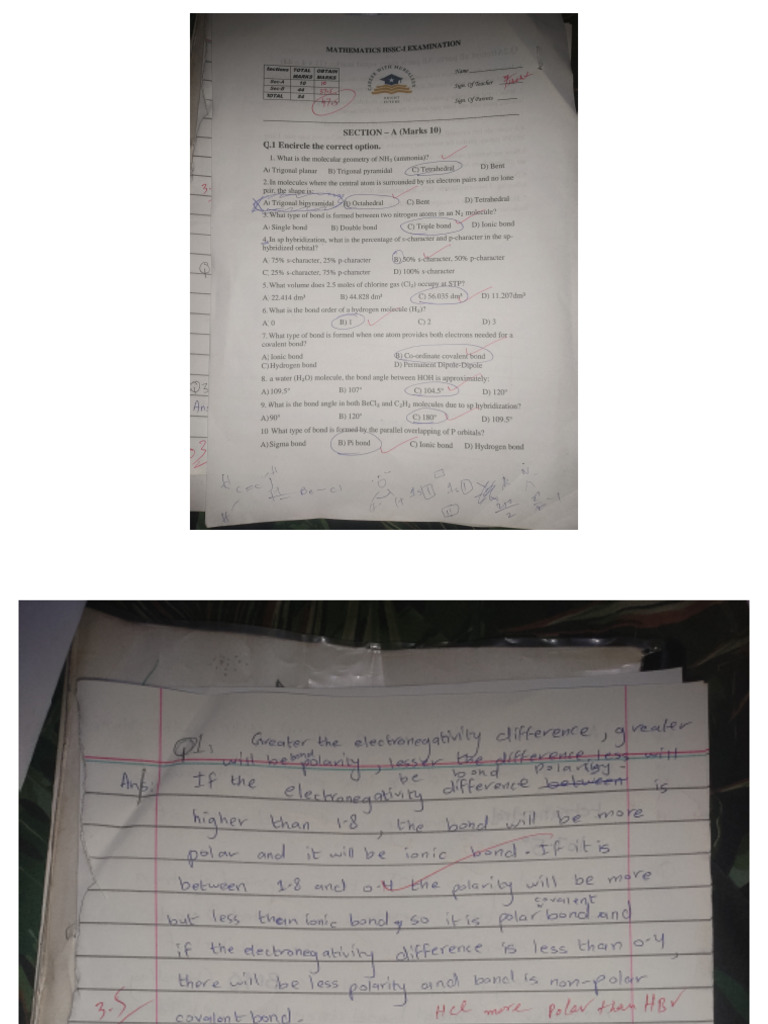 MATHEMATICS HSSC-I EXAMINATION
Sections TOTAL MARKS OBTAIN MARKS
Sec-A 10
Sec-B 44
TOTAL 54
CAREER WITH
BRIGHT FUTURE
Name
Sign. Of Teacher
Sign. Of Parents
SECTION – A (Marks 10)
Q.1 Encircle the correct option.
1. What is the molecular geometry of NH₃ (ammonia)?
A) Trigonal planar B) Trigonal pyramidal C) Tetrahedral D) Bent
2. In molecules where the central atom is surrounded by six electron pairs and no lone
pair, the shape is:
A) Trigonal bipyramidal B) Octahedral C) Bent D) Tetrahedral
3. What type of bond is formed between two nitrogen atoms in an N₂ molecule?
A) Single bond B) Double bond C) Triple bond D) Ionic bond
4. In sp hybridization, what is the percentage of s-character and p-character in the sp-
hybridized orbital?
A. 75% s-character, 25% p-character B) 50% s-character, 50% p-character
C. 25% s-character, 75% p-character D) 100% s-character
5. What volume does 2.5 moles of chlorine gas (Cl₂) occupy at STP?
A. 22.414 dm³ B) 44.828 dm³ C) 56.035 dm³ D) 11.207dm³
6. What is the bond order of a hydrogen molecule (H₂)?
A) 0 B) 1 C) 2 D) 3
7. What type of bond is formed when one atom provides both electrons needed for a
covalent bond?
A) Ionic bond B) Co-ordinate covalent bond
C) Hydrogen bond D) Permanent Dipole-Dipole
8. a water (H₂O) molecule, the bond angle between HOH is approximately:
A) 109.5° B) 107° C) 104.5° D) 120°
9. What is the bond angle in both BeCl₂ and C₂H₂ molecules due to sp hybridization?
A) 90° B) 120° C) 180° D) 109.5°
10 What type of bond is formed by the parallel overlapping of P orbitals?
A) Sigma bond B) Pi bond C) Ionic bond D) Hydrogen bond
Q1: Greater the electronegativity difference, greater
will be bond polarity, lesser the difference less will
be bond polarity.
Ans: If the electronegativity difference between is
higher than 1.8, the bond will be more
polar and it will be ionic bond. If it is
between 1.8 and 0.4 the polarity will be more
but less then ionic bond, so it is polar covalent bond and
if the electronegativity difference is less than 0.4,
there will be less polarity and bond is non-polar
covalent bond.
3.5
HCl more Polar than HBr